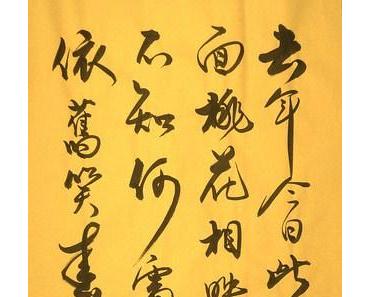 去年今日此
面桃花相映
不知何處
依舊笑春